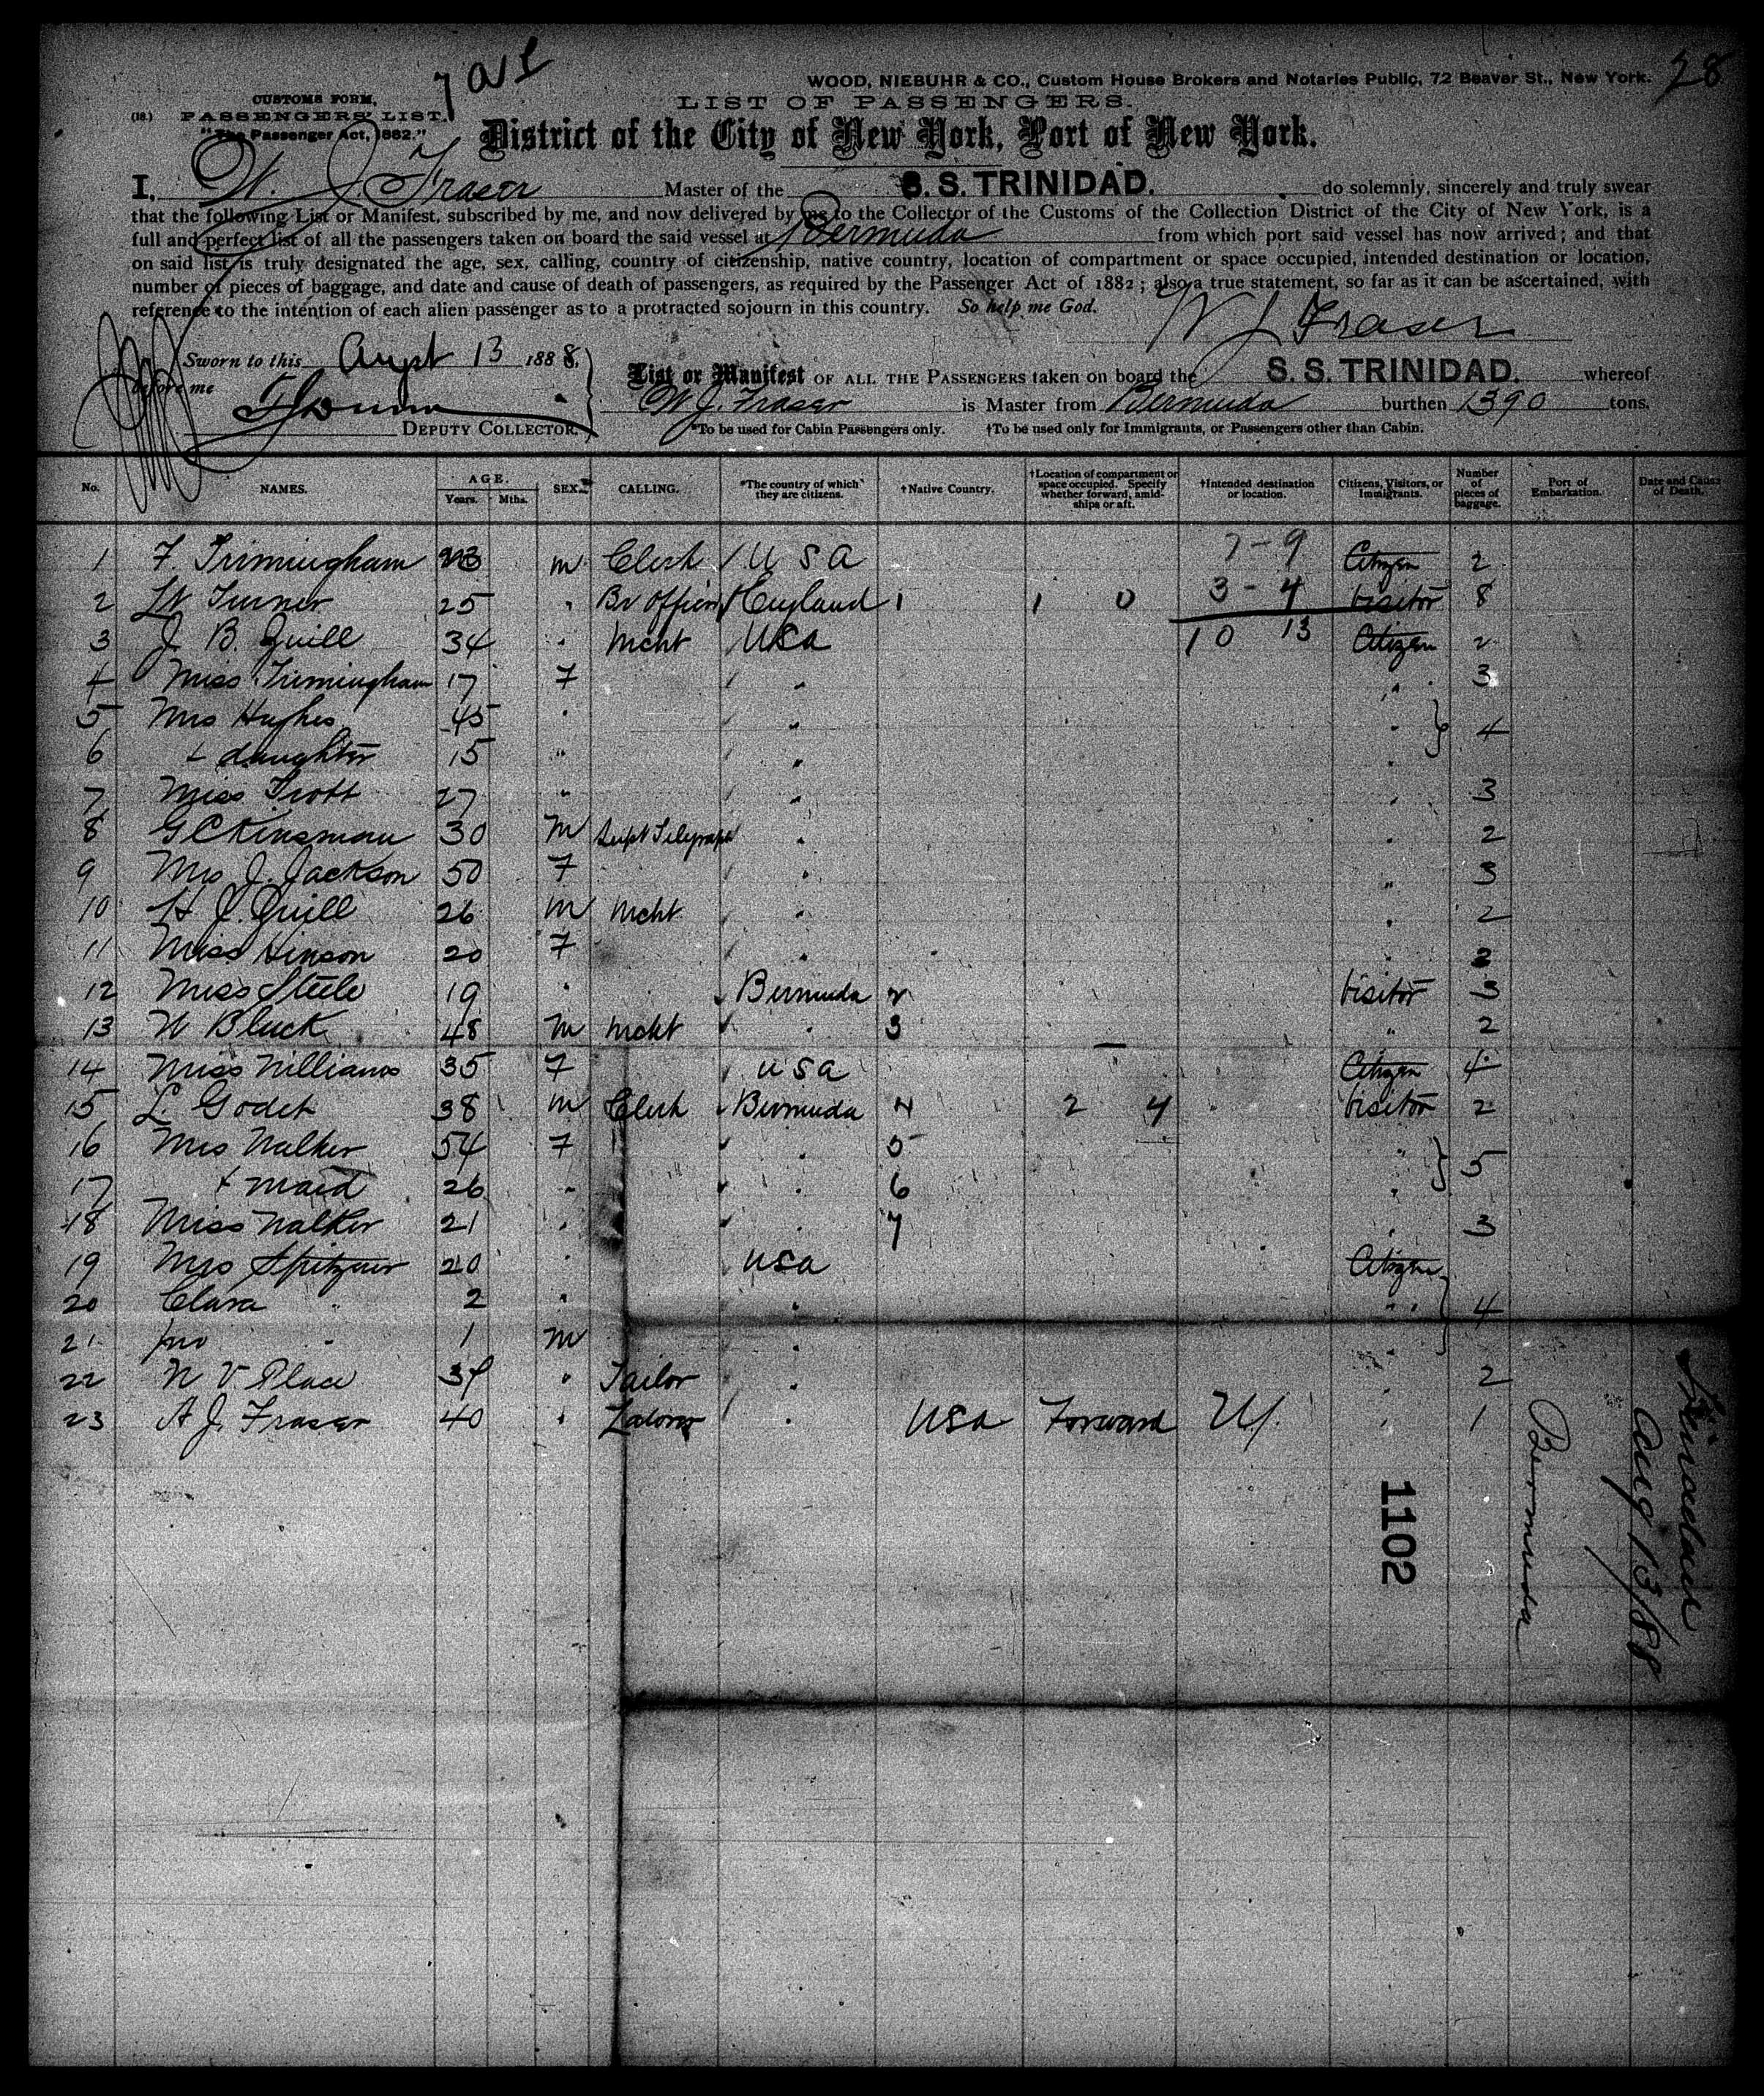 28
WOOD, NIEBUHR & CO., Custom House Brokers and Notaries Public, 72 Beaver St., New York.
CUSTOMS FORM,
LIST OF PASSENGERS.
(18.) PASSENGERS' LIST.
"The Passenger Act, 1882."
District of the City of New York, Port of New York.
I, W. J. Fraser Master of the S. S. TRINIDAD. do solemnly, sincerely and truly swear
that the following List or Manifest, subscribed by me, and now delivered by me to the Collector of the Customs of the Collection District of the City of New York, is a
full and perfect list of all the passengers taken on board the said vessel at Bermuda from which port said vessel has now arrived; and that
on said list is truly designated the age, sex, calling, country of citizenship, native country, location of compartment or space occupied, intended destination or location,
number of pieces of baggage, and date and cause of death of passengers, as required by the Passenger Act of 1882; also a true statement, so far as it can be ascertained, with
reference to the intention of each alien passenger as to a protracted sojourn in this country. So help me God.
W J Fraser
Sworn to this Augt 13 1888.
before me
List or Manifest OF ALL THE PASSENGERS taken on board the S. S. TRINIDAD. whereof
W. J. Fraser is Master from Bermuda burthen 1390 tons.
DEPUTY COLLECTOR.
*To be used for Cabin Passengers only. †To be used only for Immigrants, or Passengers other than Cabin.
No. NAMES. AGE. Years. Mths. SEX. CALLING. *The country of which they are citizens. †Native Country. †Location of compartment or space occupied. Specify whether forward, amidships or aft. †Intended destination or location. Citizens, Visitors, or Immigrants. Number of pieces of baggage. Port of Embarkation. Date and Cause of Death.
7-9
1 F. Trimingham 23 m Clerk U S A Citizen 2
2 Lt Turner 25 " Br officer England 1 1 0 3-4 Visitor 8
3 J. B. Quill 34 " Mcht USA 10 13 Citizen 2
4 Miss Trimingham 17 F " " 3
5 Mrs Hughes 45 " " "
6 + daughter 15 " " " 4
7 Miss Trott 27 " " " 3
8 G C Kinsman 30 M Supt Telegraph " " 2
9 Mrs J. Jackson 50 F " " 3
10 H. J. Quill 26 M Mcht " " 2
11 Miss Hinson 20 F " " 2
12 Miss Steele 19 " Bermuda 2 Visitor 3
13 W Bluck 48 M Mcht " 3 " 2
14 Miss Williams 35 F USA Citizen 4
15 L. Godet 38 M Clerk Bermuda 4 2 4 Visitor 2
16 Mrs Walker 54 F " 5 "
17 + maid 26 " " 6 " 5
18 Miss Walker 21 " " 7 " 3
19 Mrs Spitzner 20 " USA Citizen
20 Clara " 2 " " " 4
21 Jno " 1 M " "
22 W V Place 39 " Tailor " " 2
23 A. J. Fraser 40 " " USA Forward " 1
1102
Bermuda
Trinidad
Aug 13/88